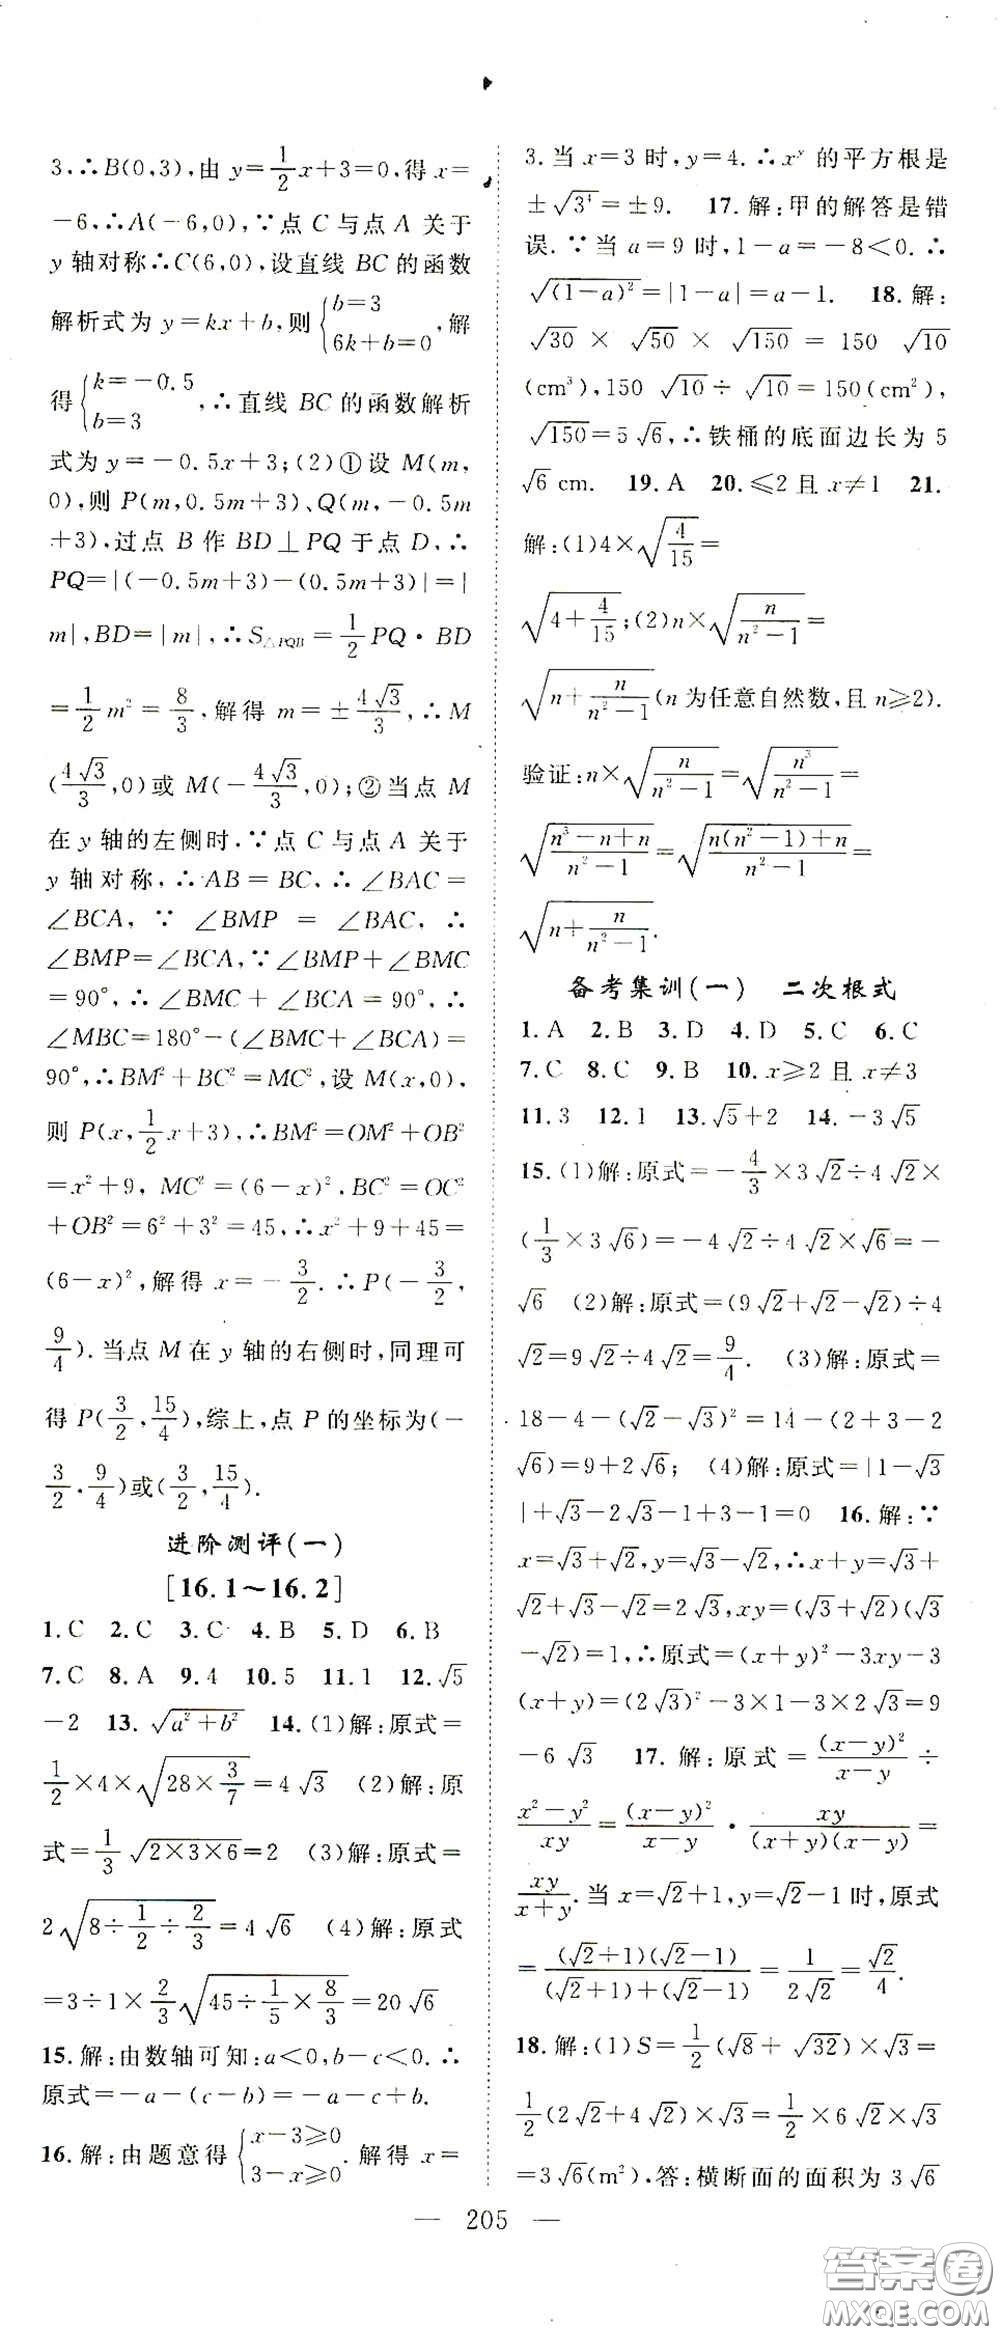 3.∴B(0,3),由 y=1/2x+3=0,得 x=
-6,∴A(-6,0),∵点 C 与点 A 关于
y 轴对称∴C(6,0),设直线 BC 的函数
解析式为 y=kx+b,则{b=3 6k+b=0,解
得{k=-0.5 b=3,∴直线 BC 的函数解析
式为 y=-0.5x+3;(2)①设 M(m,
0),则 P(m,0.5m+3)、Q(m,-0.5m
+3),过点 B 作 BD⊥PQ 于点 D,∴
PQ=|(-0.5m+3)-(0.5m+3)|=|
m|,BD=|m|,∴S△PQB=1/2PQ·BD
=1/2m²=8/3,解得 m=±4√3/3,∴M
(4√3/3,0)或 M(-4√3/3,0);②当点 M
在 y 轴的左侧时,∵点 C 与点 A 关于
y 轴对称,∴AB=BC,∴∠BAC=
∠BCA,∵∠BMP=∠BAC,∴
∠BMP=∠BCA,∵∠BMP+∠BMC
=90°,∴∠BMC+∠BCA=90°,∴
∠MBC=180°-(∠BMC+∠BCA)=
90°,∴BM²+BC²=MC²,设 M(x,0),
则 P(x,1/2x+3),∴BM²=OM²+OB²
=x²+9,MC²=(6-x)²,BC²=OC²
+OB²=6²+3²=45,∴x²+9+45=
(6-x)²,解得 x=-3/2.∴P(-3/2,
9/4).当点 M 在 y 轴的右侧时,同理可
得 P(3/2,15/4),综上,点 P 的坐标为(-
3/2,9/4)或(3/2,15/4).
进阶测评(一)
[16.1~16.2]
1.C 2.C 3.C 4.B 5.D 6.B
7.C 8.A 9.4 10.5 11.1 12.√5
-2 13.√(a²+b²) 14.(1)解:原式=
1/2×4×√(28×3/7)=4√3 (2)解:原
式=1/3√(2×3×6)=2 (3)解:原式=
2√(8÷1/2÷2/3)=4√6 (4)解:原式
=3÷1×2/3√(45÷1/5×8/3)=20√6
15.解:由数轴可知:a<0,b-c<0.∴
原式=-a-(c-b)=-a-c+b.
16.解:由题意得{x-3≥0 3-x≥0.解得 x=
3.当 x=3 时,y=4.∴x^y 的平方根是
±√(3⁴)=±9. 17.解:甲的解答是错
误.∵当 a=9 时,1-a=-8<0.∴
√((1-a)²)=|1-a|=a-1. 18.解:
√30×√50×√150=150√10
(cm³),150√10÷√10=150(cm²),
√150=5√6,∴铁桶的底面边长为 5
√6 cm. 19.A 20.≤2且 x≠1 21.
解:(1)4×√(4/15)=
√(4+4/15);(2)n×√(n/(n²-1))=
√(n+n/(n²-1))(n 为任意自然数,且 n≥2).
验证:n×√(n/(n²-1))=√(n³/(n²-1))=
√((n³-n+n)/(n²-1))=√((n(n²-1)+n)/(n²-1))=
√(n+n/(n²-1)).
备考集训(一) 二次根式
1.A 2.B 3.D 4.D 5.C 6.C
7.C 8.C 9.B 10.x≥2 且 x≠3
11.3 12.1 13.√5+2 14.-3√5
15.(1)解:原式=-4/3×3√2÷4√2×
(1/3×3√6)=-4√2÷4√2×√6=-
√6 (2)解:原式=(9√2+√2-√2)÷4
√2=9√2÷4√2=9/4. (3)解:原式=
18-4-(√2-√3)²=14-(2+3-2
√6)=9+2√6; (4)解:原式=|1-√3
|+√3-2√3-1+3-1=0 16.解:∵
x=√3+√2,y=√3-√2,∴x+y=√3+
√2+√3-√2=2√3,xy=(√3+√2)(√3
-√2)=1,∴原式=(x+y)²-3xy-3
(x+y)=(2√3)²-3×1-3×2√3=9
-6√3 17.解:原式=(x-y)²/(x-y)÷
(x²-y²)/xy=(x-y)²/(x-y)·xy/((x+y)(x-y))=
xy/(x+y).当 x=√2+1,y=√2-1时,原式
=(√2+1)(√2-1)/((√2+1)+(√2-1))=1/(2√2)=√2/4.
18.解:(1)S=1/2(√8+√32)×√3=
1/2(2√2+4√2)×√3=1/2×6√2×√3
=3√6(m²).答:横断面的面积为 3√6
— 205 —
答案卷
MXQE.COM